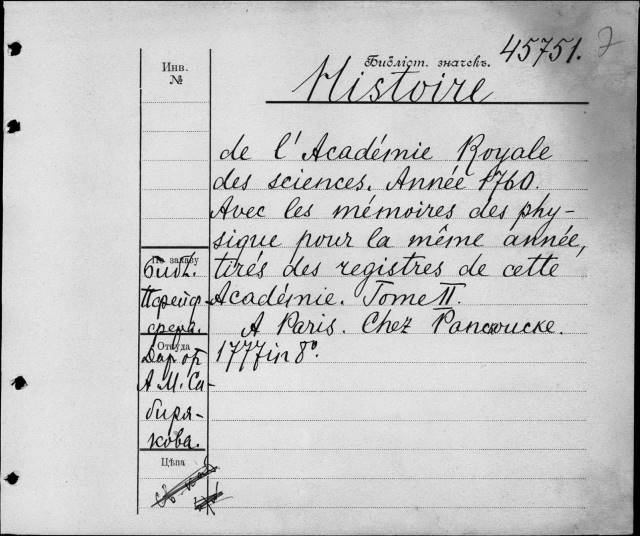 45751.
Библіот. значекъ.
Инв.
№
Histoire
de l'Académie Royale
des sciences. Année 1760.
Avec les mémoires des phy-
sique pour la même année,
tirés des registres de cette
Académie. Tome II.
A Paris. Chez Pancoucke.
1777 in 8º.
по заказу
Библ.
Пфейф-
фера.
Откуда
Дар от
А. М. Си-
биря-
кова.
Цѣна